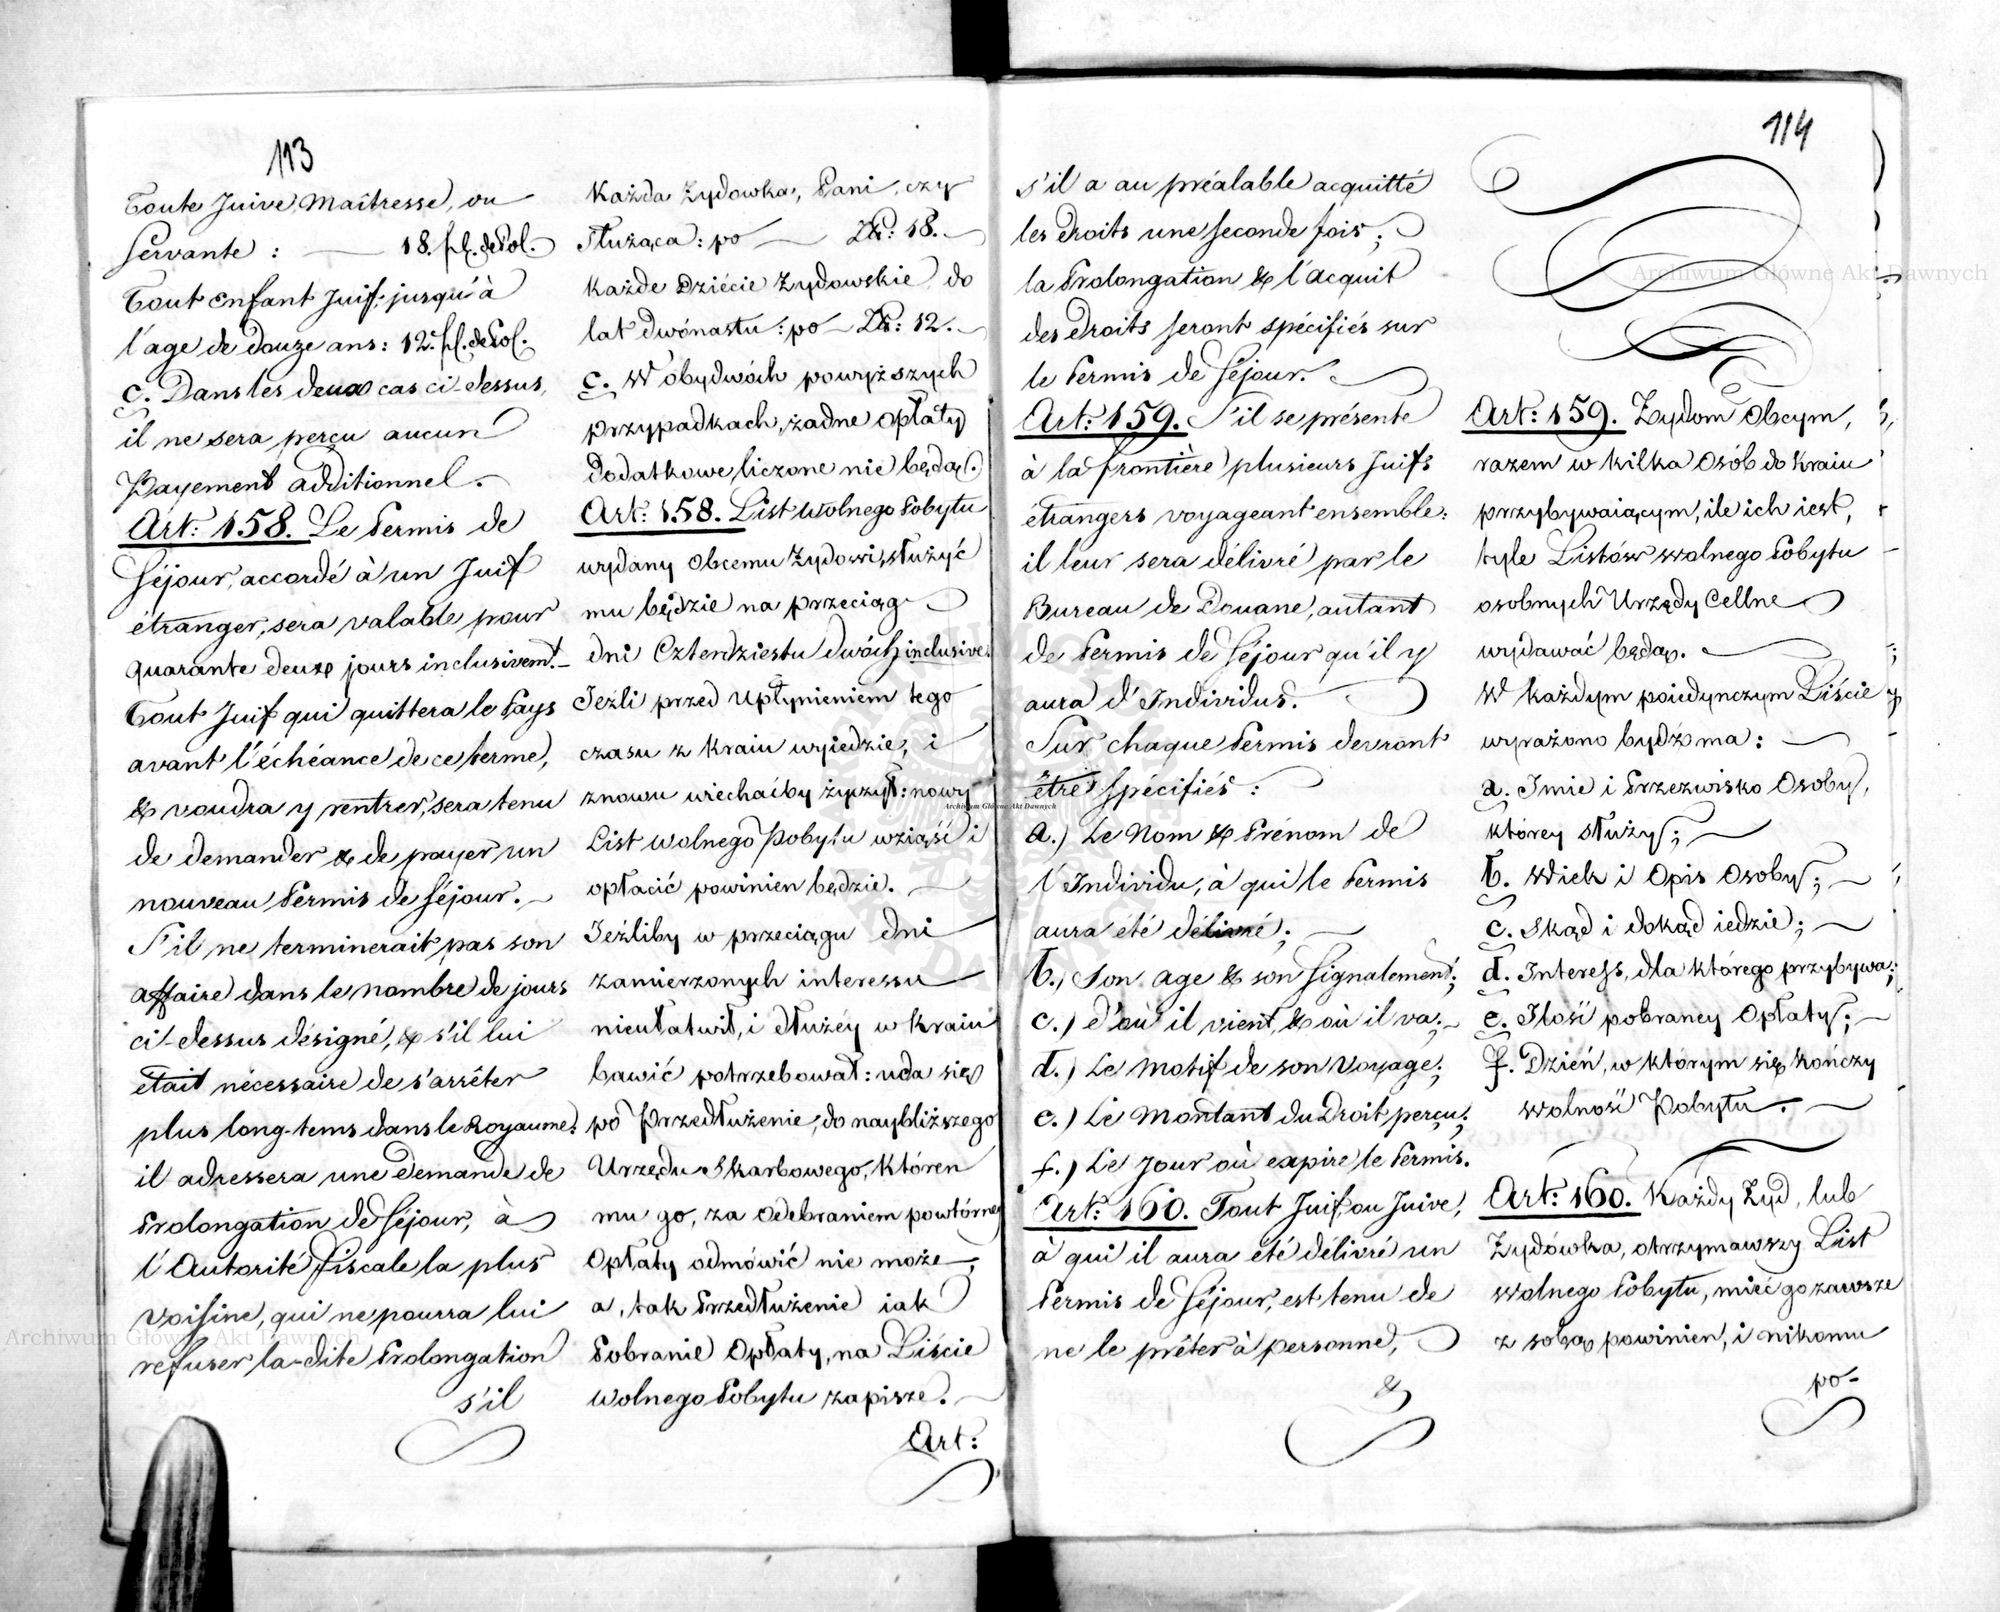 113
Toute Juive, Maîtresse, ou
Servante : — 18. fl. de Pol.
Tout enfant Juif jusqu'à
l'age de douze ans : 12. fl. de Pol.
c. Dans les deux cas ci-dessus,
il ne sera perçu aucun
Payement additionnel.
Art: 158. Le Permis de
Séjour, accordé à un Juif
étranger, sera valable pour
quarante deux jours inclusivemt.
Tout Juif qui quittera le Pays
avant l'échéance de ce terme,
& voudra y rentrer, sera tenu
de demander & de payer un
nouveau Permis de Séjour.
S'il ne terminerait pas son
affaire dans le nombre de jours
ci-dessus désigné, & s'il lui
était nécessaire de s'arrêter
plus long-tems dans le Royaume:
il adressera une demande de
Prolongation de Séjour, à
l'Autorité fiscale la plus
voisine, qui ne pourra lui
refuser la-dite Prolongation
s'il
Każda Żydowka, Pani, czy
Służąca : po — Zł: 18.
Każde Dziécie Żydowskie do
lat dwónastu : po — Zł: 12.
c. W obydwóch powyższych
przypadkach, żadne Opłaty
Dodatkowe liczone nie będą.
Art: 158. List Wolnego Pobytu
wydany Obcemu Żydowi, służyć
mu będzie na przeciąg
dni Czterdziestu dwóch inclusive.
Jeżli przed upłynieniem tego
czasu z Kraiu wyiedzie, i
znowu wiechaćby życzył: nowy
List wolnego Pobytu wziąść i
opłacić powinien będzie.
Jeżliby w przeciągu dni
zamierzonych interessu
nieułatwił, i dłużéy w Kraiu
bawić potrzebował: uda się
po Przedłużenie, do naybliższego
Urzędu Skarbowego, któren
mu go, za Odebraniem powtórney
Opłaty odmówić nie może,
a, tak Przedłużenie iak
Pobranie Opłaty, na Liście
wolnego Pobytu zapisze.
Art:
114
s'il a au préalable acquitté
les Droits une seconde fois;
la Prolongation & l'acquit
des Droits seront spécifiés sur
le Permis de Séjour.
Art: 159. S'il se présente
à la frontière plusieurs Juifs
étrangers voyageant ensemble:
il leur sera délivré par le
Bureau de Douane, autant
de Permis de Séjour qu'il y
aura d'Individus.
Sur chaque Permis devront
être spécifiés :
a.) Le Nom & Prénom de
l'Individu, à qui le Permis
aura été délivré;
b.) Son age & son Signalement;
c.) d'où il vient, & où il va;
d.) Le Motif de son Voyage;
e.) Le Montant du Droit perçu;
f.) Le Jour où expire le Permis.
Art: 160. Tout Juif, ou Juive,
à qui il aura été délivré un
Permis de Séjour, est tenu de
ne le prêter à personne,
&
Art: 159. Żydom Obcym,
razem w kilka Osób do Kraiu
przybywaiącym, ile ich iest,
tyle Listów wolnego Pobytu
osobnych Urzędy Cellne
wydawać będą.
W każdym poiedynczym Liście
wyrażono bydź ma :
a. Imie i Przezwisko Osoby,
któréy służy;
b. Wiek i Opis Osoby;
c. Skąd i dokąd iedzie;
d. Interess, dla którego przybywa;
e. Ilość pobraney Opłaty;
f. Dzień, w którym się kończy
wolność Pobytu.
Art: 160. Każdy Żyd, lub
Żydówka, otrzymawszy List
wolnego Pobytu, mieć go zawsze
z sobą powinien, i nikomu
po-
Archiwum Główne Akt Dawnych
Archiwum Główne Akt Dawnych
Archiwum Główne Akt Dawnych